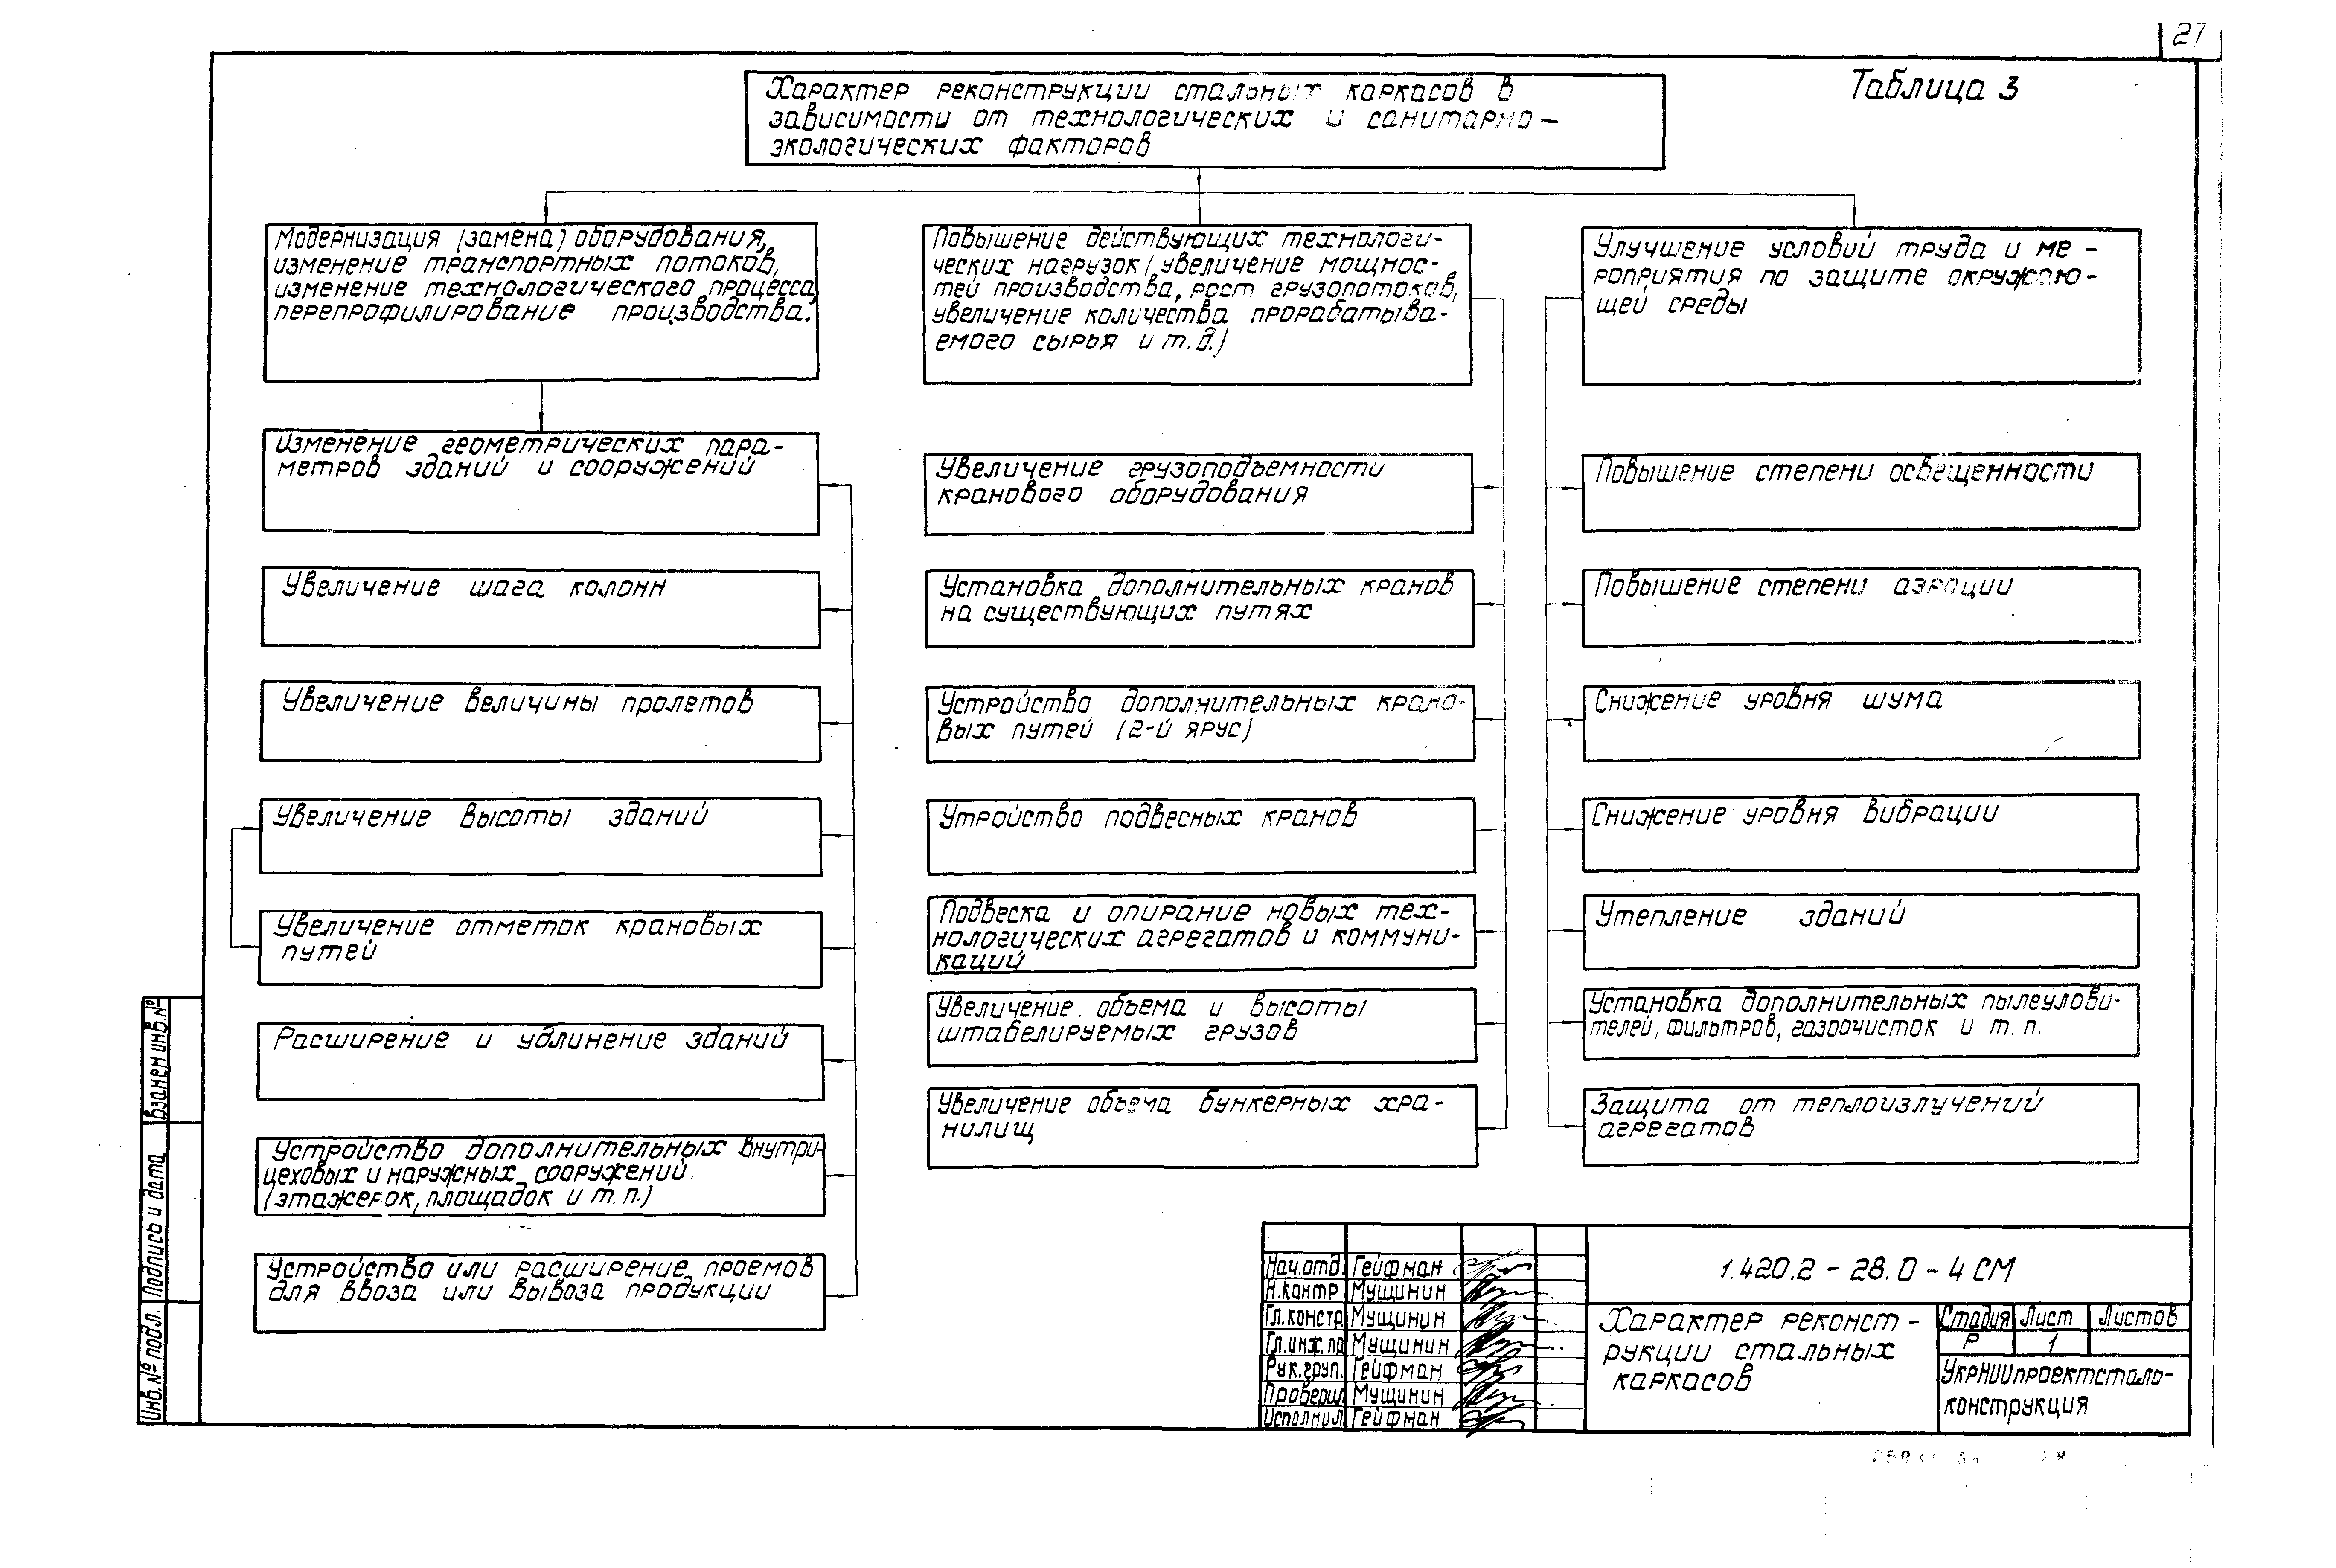 27
Таблица 3
Характер реконструкции стальных каркасов в
зависимости от технологических и санитарно-
экологических факторов
Модернизация (замена) оборудования,
изменение транспортных потоков,
изменение технологического процесса,
перепрофилирование производства.
Изменение геометрических пара-
метров зданий и сооружений
Увеличение шага колонн
Увеличение величины пролетов
Увеличение высоты зданий
Увеличение отметок крановых
путей
Расширение и удлинение зданий
Устройство дополнительных внутри-
цеховых и наружных сооружений.
(этажерок, площадок и т.п.)
Устройство или расширение проемов
для ввоза или вывоза продукции
Повышение действующих технологи-
ческих нагрузок (увеличение мощнос-
тей производства, рост грузопотоков,
увеличение количества прорабатыва-
емого сырья и т.д.)
Увеличение грузоподъемности
кранового оборудования
Установка дополнительных кранов
на существующих путях
Устройство дополнительных крано-
вых путей (2-й ярус)
Утройство подвесных кранов
Подвеска и опирание новых тех-
нологических агрегатов и коммуни-
каций
Увеличение объема и высоты
штабелируемых грузов
Увеличение объема бункерных хра-
нилищ
Улучшение условий труда и ме-
роприятия по защите окружаю-
щей среды
Повышение степени освещенности
Повышение степени аэрации
Снижение уровня шума
Снижение уровня вибрации
Утепление зданий
Установка дополнительных пылеулови-
телей, фильтров, газоочисток и т.п.
Защита от теплоизлучений
агрегатов
Взамен инв.№
Подпись и дата
Инв.№ подл.
Нач.отд. Гейфман
Н.контр Мущинин
Гл.констр. Мущинин
Гл.инж.пр Мущинин
Рук.груп. Гейфман
Проверил Мущинин
Исполнил Гейфман
1.420.2-28.0-4 СМ
Характер реконст-
рукции стальных
каркасов
Стадия Лист Листов
Р 1
УкрНИИпроектсталь-
конструкция